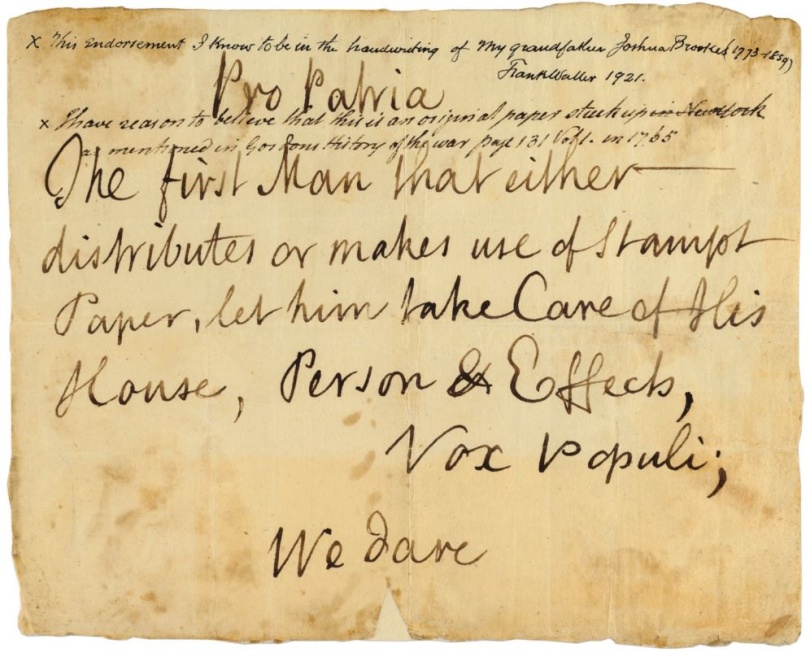 x This Endorsement I know to be in the handwriting of my grandfather Joshua Brookes (1773-1859)
Frank Waller 1921.
Pro Patria
x I have reason to believe that this is an original paper stuck up in New York
as mentioned in Gordons History of the war page 131 Vol 1. in 1765
The first Man that either
distributes or makes use of Stampt
Paper, let him take Care of His
House, Person & Effects,
Vox Populi;
We dare